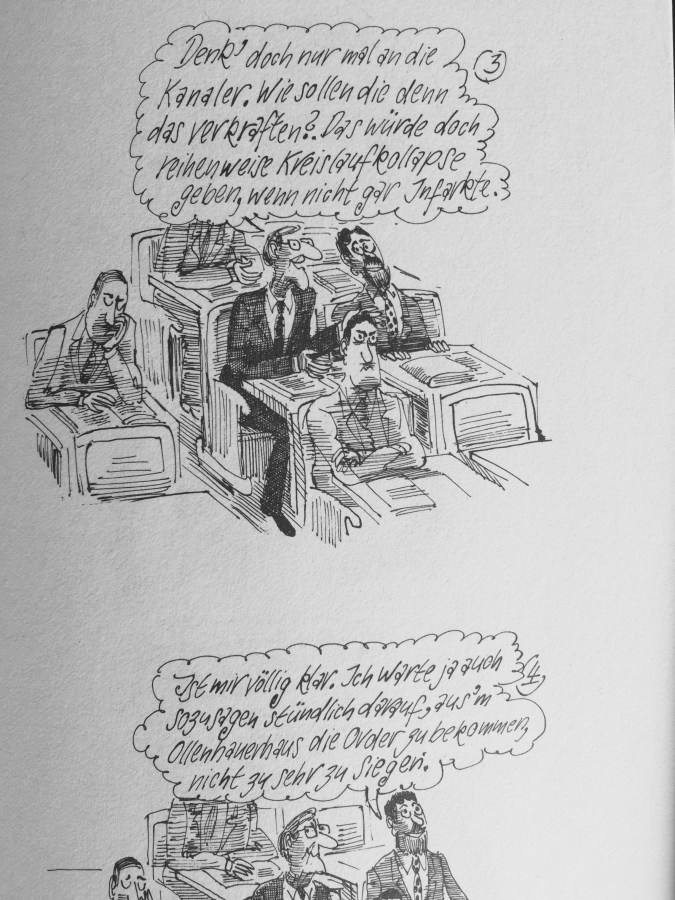 Denk' doch nur mal an die
③
Kanaler. Wie sollen die denn
das verkraften?. Das würde doch
reihenweise Kreislaufkollapse
geben, wenn nicht gar Infarkte.
Ist mir völlig klar. Ich warte ja auch
4,
sozusagen stündlich darauf, aus'm
Ollenhauerhaus die Order zu bekommen,
nicht zu sehr zu siegen.